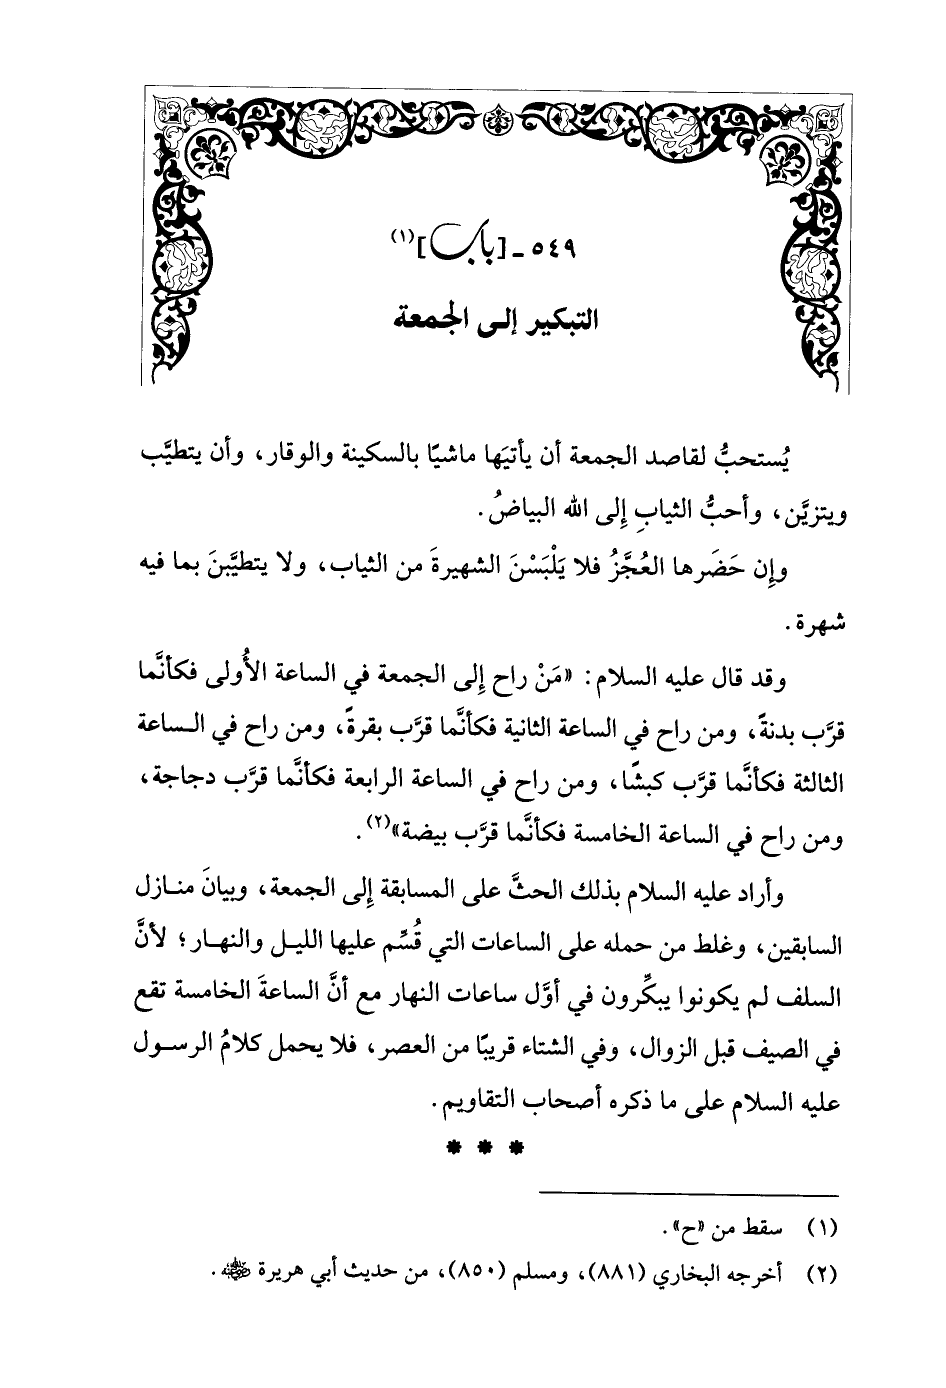 ٥٤٩ - [باب](١)
التبكير إلى الجمعة
يُستحبُّ لقاصد الجمعة أن يأتيَها ماشيًا بالسكينة والوقار، وأن يتطيَّب
ويتزيَّن، وأحبُّ الثيابِ إلى الله البياضُ.
وإن حَضَرها العُجَّزُ فلا يَلْبَسْنَ الشهيرةَ من الثياب، ولا يتطيَّبنَ بما فيه
شهرة.
وقد قال عليه السلام: «مَنْ راح إلى الجمعة في الساعة الأُولى فكأنَّما
قرَّب بدنةً، ومن راح في الساعة الثانية فكأنَّما قرَّب بقرةً، ومن راح في الساعة
الثالثة فكأنَّما قرَّب كبشًا، ومن راح في الساعة الرابعة فكأنَّما قرَّب دجاجة،
ومن راح في الساعة الخامسة فكأنَّما قرَّب بيضة»(٢).
وأراد عليه السلام بذلك الحثَّ على المسابقة إلى الجمعة، وبيانَ منازل
السابقين، وغلط من حمله على الساعات التي قُسِّم عليها الليل والنهار؛ لأنَّ
السلف لم يكونوا يبكِّرون في أوَّل ساعات النهار مع أنَّ الساعةَ الخامسة تقع
في الصيف قبل الزوال، وفي الشتاء قريبًا من العصر، فلا يحمل كلامُ الرسول
عليه السلام على ما ذكره أصحاب التقاويم.
* * *
(١) سقط من «ح».
(٢) أخرجه البخاري (٨٨١)، ومسلم (٨٥٠)، من حديث أبي هريرة رضي الله عنه.